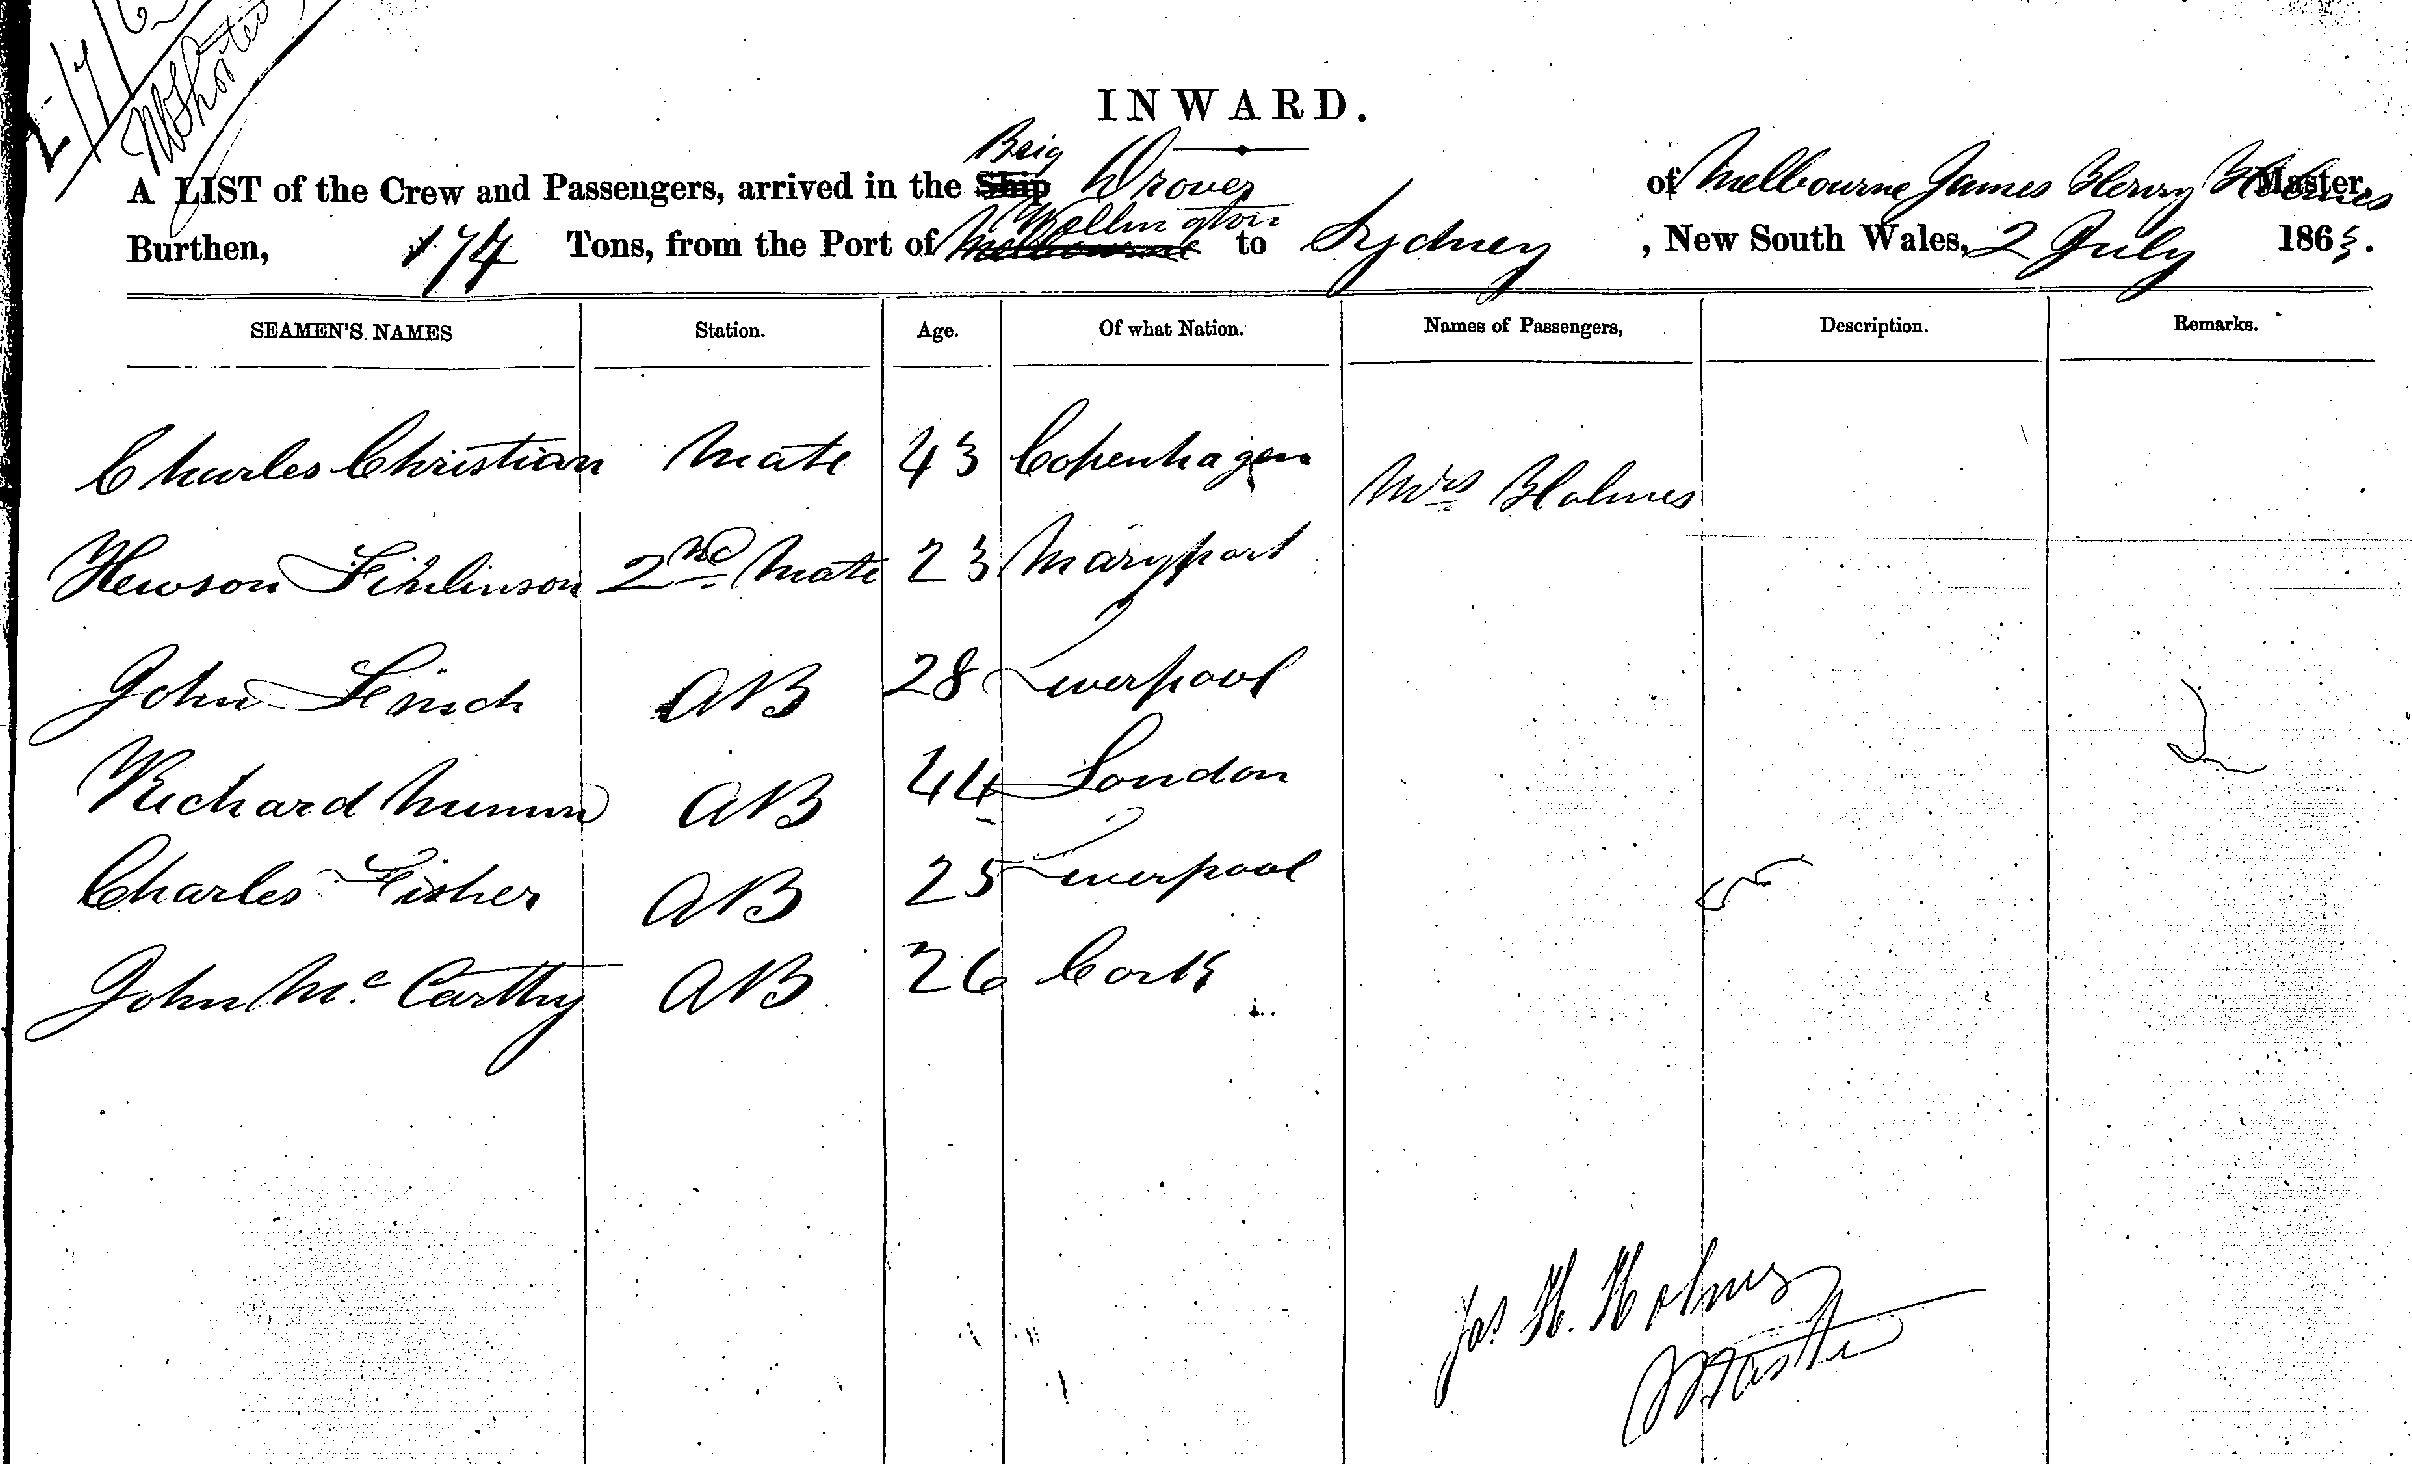 2/7/6
INWARD.
A LIST of the Crew and Passengers, arrived in the Ship Brig Drover of Melbourne James Henry Holmes Master,
Burthen, 174 Tons, from the Port of Melbourne Wellington to Sydney, New South Wales, 2 July 1863.
SEAMEN'S NAMES Station. Age. Of what Nation. Names of Passengers, Description. Remarks.
Charles Christian Mate 43 Copenhagen Mrs Holmes
Hewson 2nd Mate 23 Maryport
John AB 28 Liverpool
Richard AB 44 London
Charles Fisher AB 25 Liverpool
John Mc Carthy AB 26 Cork
Jas H. Holmes
Master